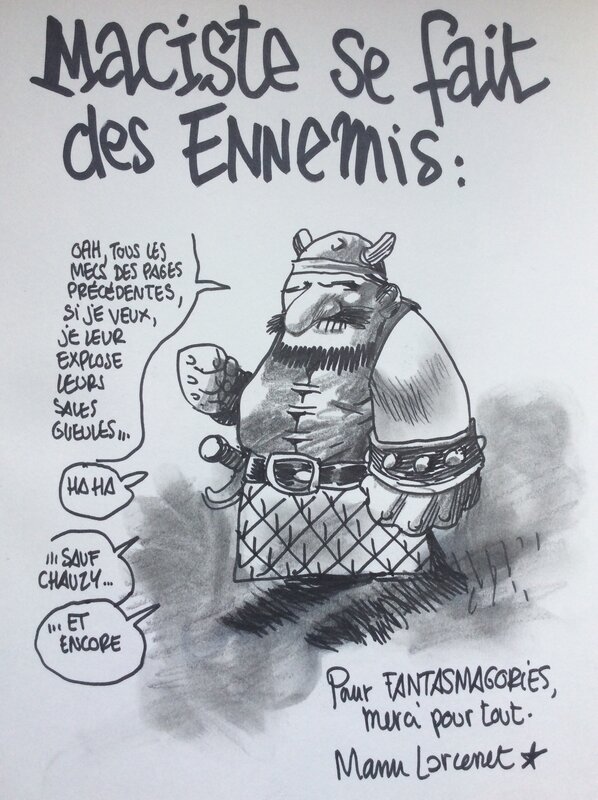 Maciste se fait
des Ennemis:
OAH, TOUS LES
MECS DES PAGES
PRÉCÉDENTES,
SI JE VEUX,
JE LEUR
EXPLOSE
LEURS
SALES
GUEULES...
HA HA
... SAUF
CHAUZY...
... ET
ENCORE
Pour FANTASMAGORIES,
merci pour tout.
Manu Larcenet